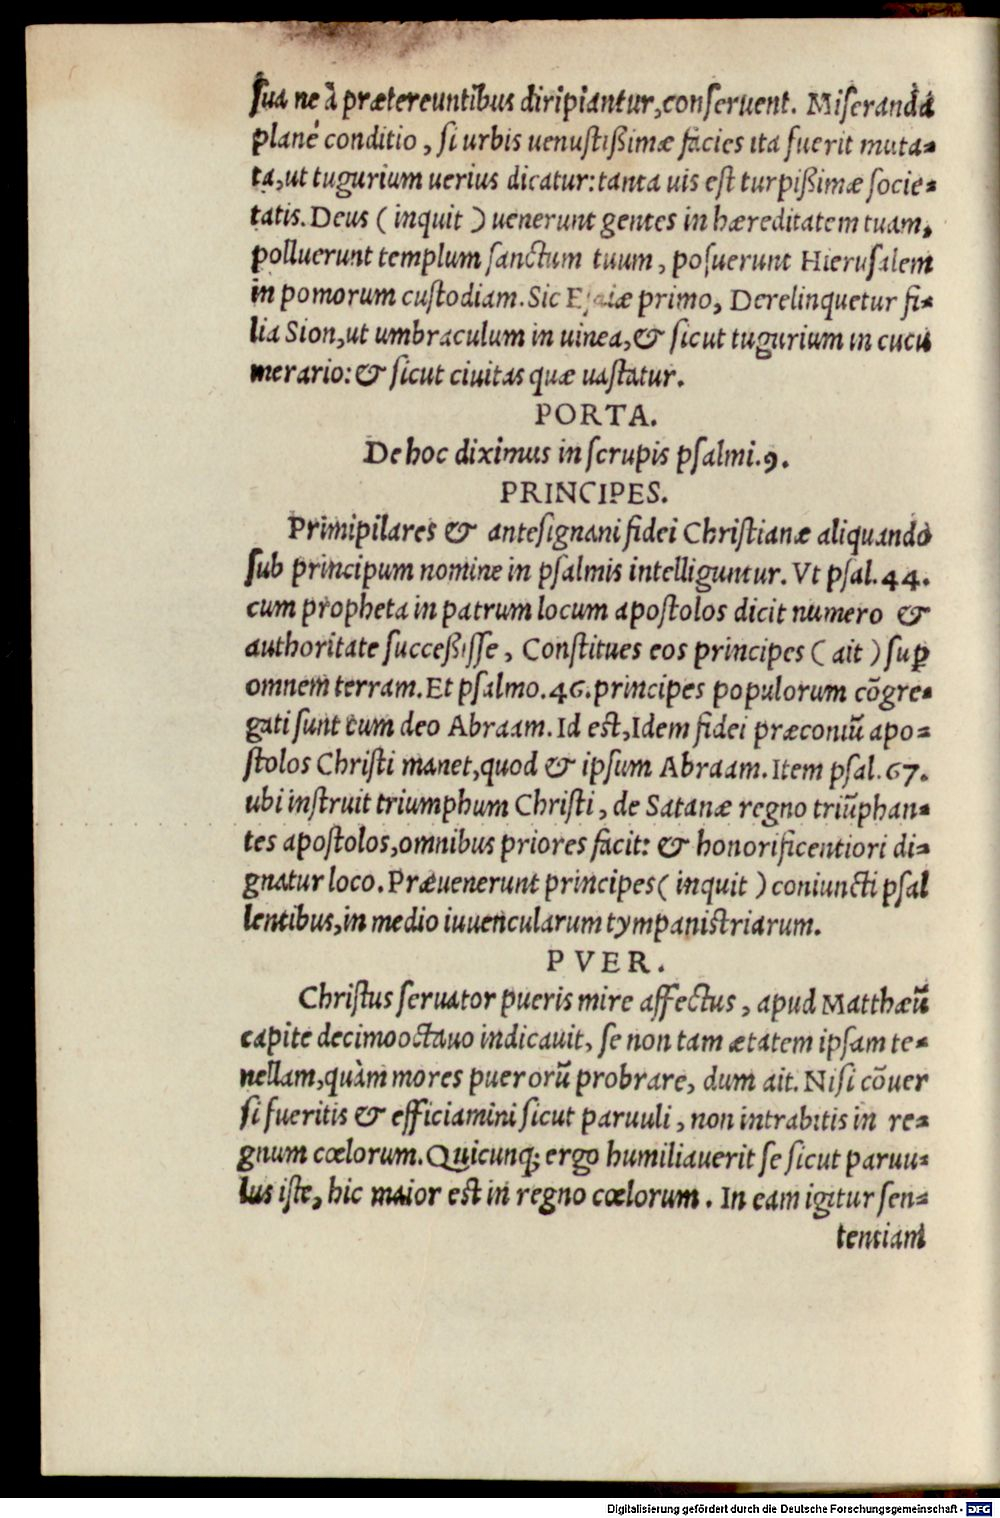 sua ne à prætereuntibus diripiantur, conseruent. Miseranda
planè conditio, si urbis uenustißimæ facies ita fuerit muta-
ta, ut tugurium uerius dicatur: tanta uis est turpißimæ socie-
tatis. Deus (inquit) uenerunt gentes in hæreditatem tuam,
polluerunt templum sanctum tuum, posuerunt Hierusalem
in pomorum custodiam. Sic Esaiæ primo, Derelinquetur fi-
lia Sion, ut umbraculum in uinea, & sicut tugurium in cucu
merario: & sicut ciuitas quæ uastatur.
PORTA.
De hoc diximus in scrupis psalmi. 9.
PRINCIPES.
Primipilares & antesignani fidei Christianæ aliquando
sub principum nomine in psalmis intelliguntur. Vt psal. 44.
cum propheta in patrum locum apostolos dicit numero &
authoritate succeßisse, Constitues eos principes (ait) suꝑ
omnem terram. Et psalmo. 46. principes populorum cõgre-
gati sunt cum deo Abraam. Id est, Idem fidei præconiũ apo-
stolos Christi manet, quod & ipsum Abraam. Item psal. 67.
ubi instruit triumphum Christi, de Satanæ regno triũphan-
tes apostolos, omnibus priores facit: & honorificentiori di-
gnatur loco. Præuenerunt principes (inquit) coniuncti psal
lentibus, in medio iuuencularum tympanistriarum.
PVER.
Christus seruator pueris mire affectus, apud Matthæũ
capite decimooctauo indicauit, se non tam ætatem ipsam te-
nellam, quàm mores puerorũ probrare, dum ait. Nisi cõuer
si fueritis & efficiamini sicut paruuli, non intrabitis in re-
gnum cœlorum. Quicunq; ergo humiliauerit se sicut paruu-
lus iste, hic maior est in regno cœlorum. In eam igitur sen-
tentiam
Digitalisierung gefördert durch die Deutsche Forschungsgemeinschaft - DFG